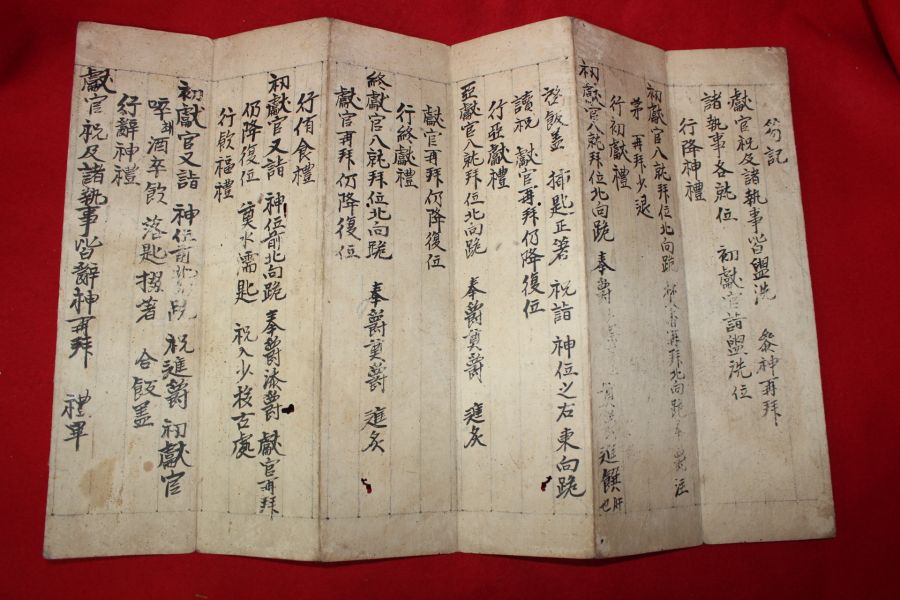 笏記
獻官祝及諸執事皆盥洗 參神再拜
諸執事各就位 初獻官詣盥洗位
行降神禮
初獻官入就拜位北向跪 焚香再拜北向跪奉爵注
茅 再拜少退
行初獻禮
初獻官入就拜位北向跪 奉爵 進饌肝也
啓飯盖 揷匙正箸 祝詣 神位之右東向跪
讀祝 獻官再拜仍降復位
行亞獻禮
亞獻官入就拜位北向跪 奉爵奠爵 進炙
獻官再拜仍降復位
行終獻禮
終獻官入就拜位北向跪 奉爵奠爵 進炙
獻官再拜仍降復位
行侑食禮
初獻官又詣 神位前北向跪 奉爵添爵 獻官再拜
仍降復位 奠水濡匙 祝入少梜古處
行飮福禮
初獻官又詣 神位前北向跪 祝進爵 初獻官
啐酒卒飮 落匙掇箸 合飯盖
行辭神禮
獻官祝及諸執事皆辭神再拜 禮畢